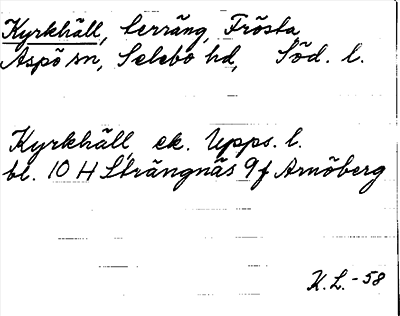 Kyrkhäll, terräng, Frösta,
Aspö sn, Selebo hd, Söd. l.
Kyrkhäll, ek. Upps. l.
bl. 10 H Strängnäs 9f Arnöberg
K.L.-58